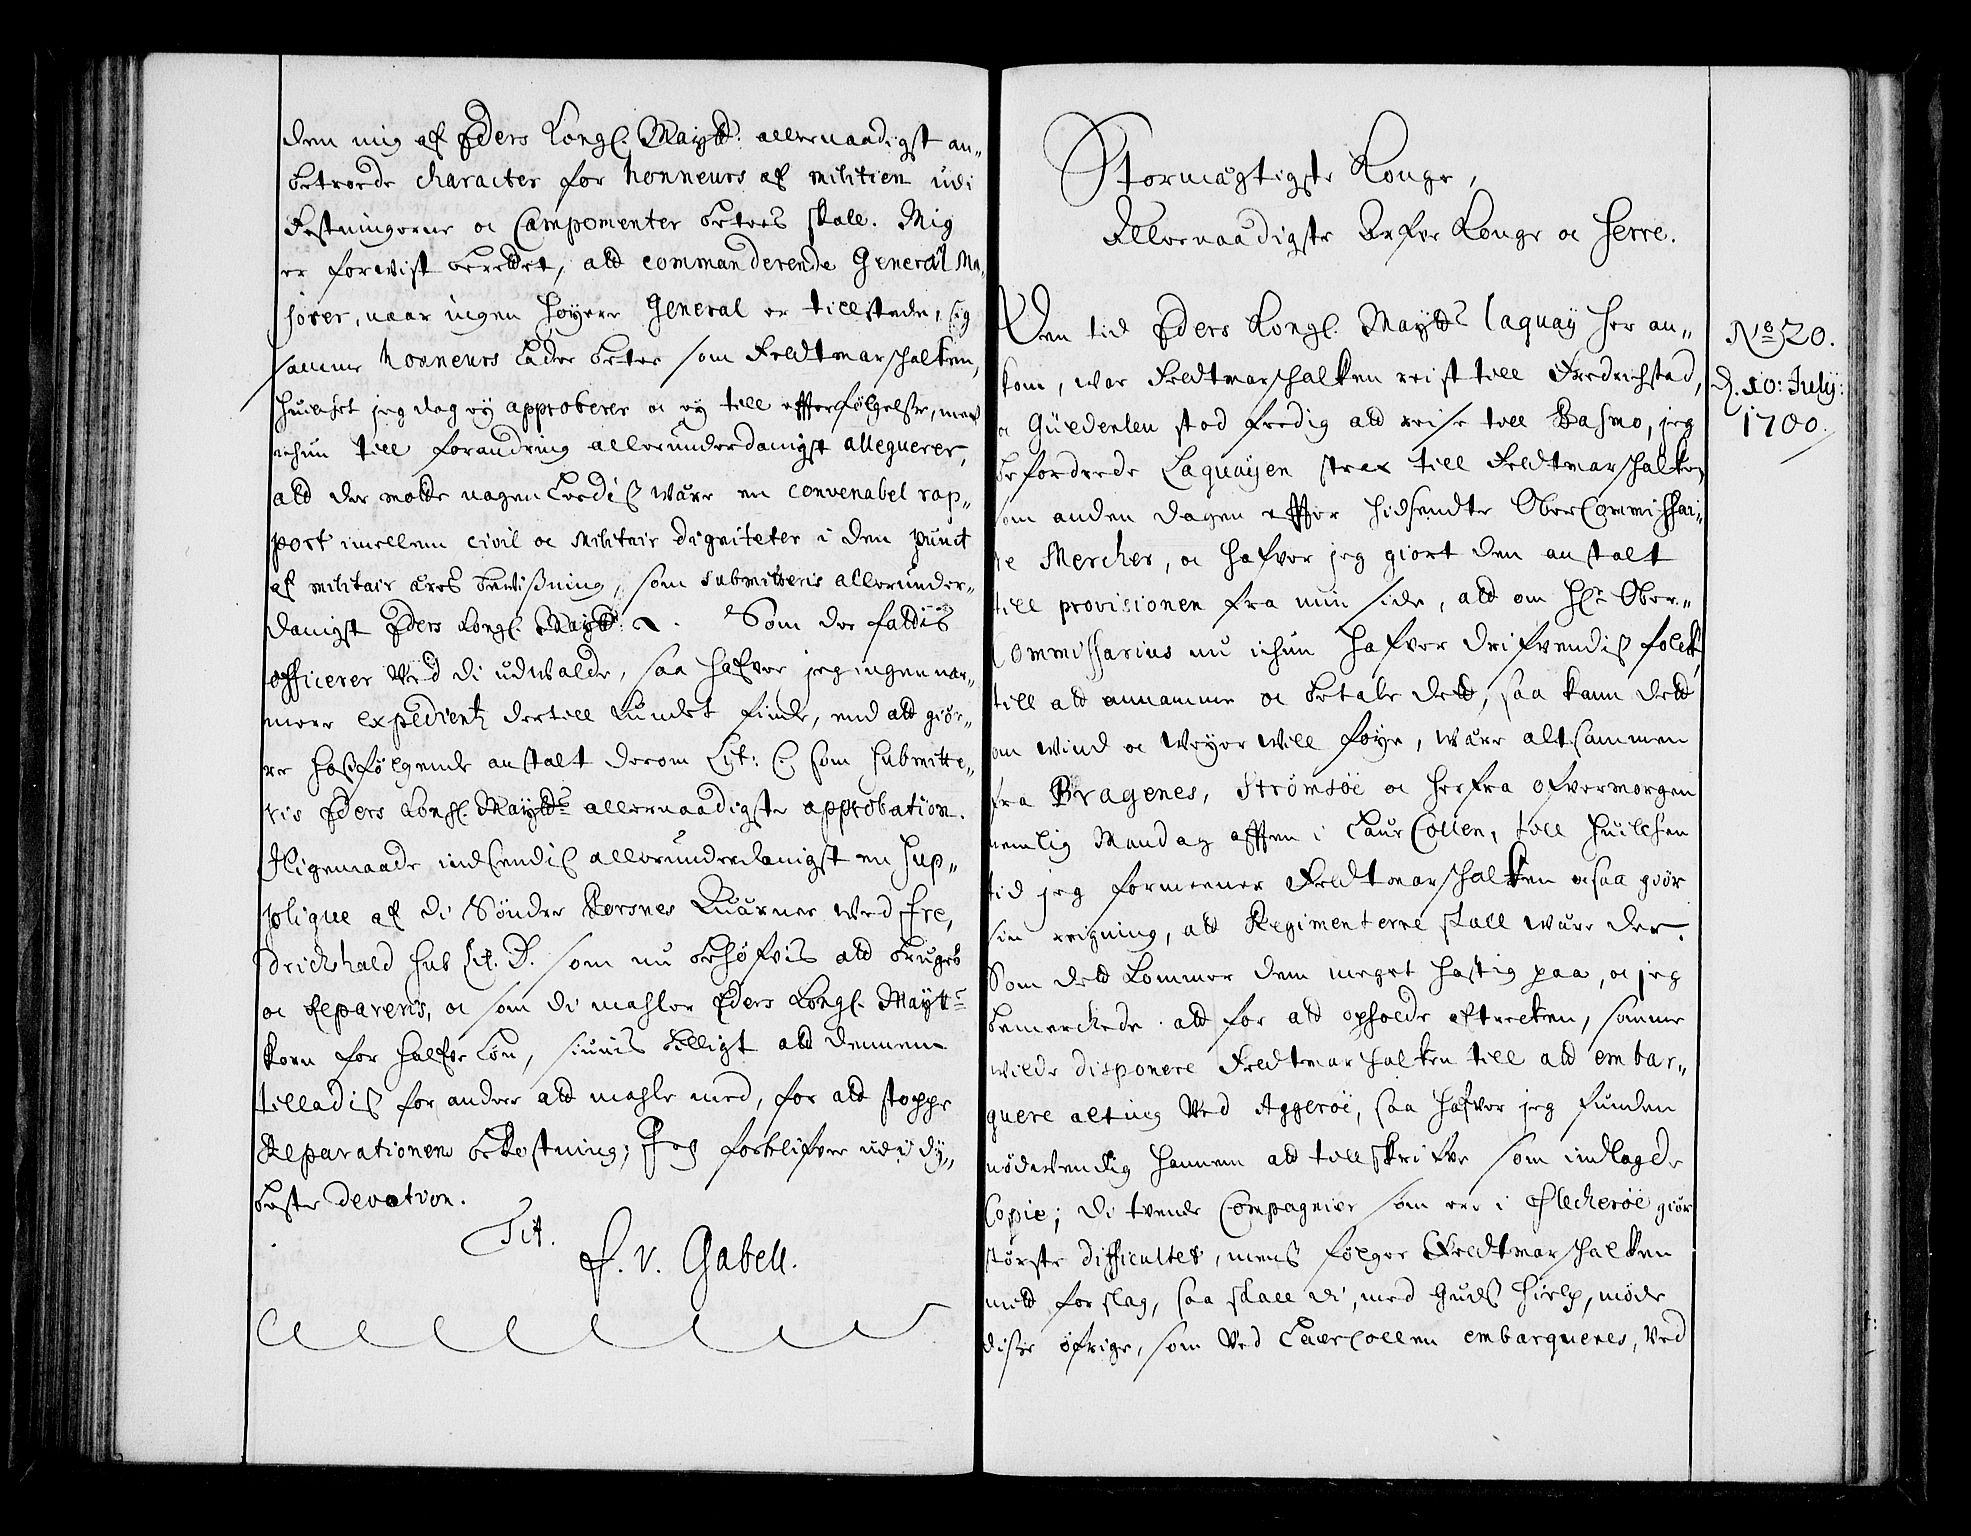 den mig af Eders Kongl. Maytt. allernaadigst an„
betroede character for honneurs af militien udi
Festningerne oc Campementer betees skall. Mig
er forwist berettet, att commanderende General Ma„
jorer, naar ingen høyere General er tillstede, sig
samme honneurs lader betee som Feldtmarschalken,
huilchet jeg dog ey approberer oc ey till efterfølgelse, men
ichun till forandring allerunderdanigst alleguerer,
att der motte nogenledis være en convenabel rap„
port imellem civil oc militair digniteter i den punct
af militair æres bevisning, som submitteris allerunder„
danigst Eders Kongl. Maytt. Som der fattis
officerer ved di udvalde, saa hafver jeg ingen nær„
mere expedientz dertill kundet finde, end att giø„
re hosfølgende anstalt derom Lit: C. som submitte„
ris Eders Kongl. Maytts allernaadigste approbation.
Jligemaade indsendis allerunderdanigst en sup„
plique af di Sønder Qværner ved Fre„
drichshald sub Lit. D. som nu behøfvis att bruges
oc repareris, oc som di mahler Eders Kongl. Maytts
korn for halfve løn, siunis billigt att dennem
tilladis for andre att mahle med, for att stoppe
Reparationens bekostning; Jeg forblifver udi dy„
beste devotion.
Tit.
F. v. Gabell.
Stormægtigste Konge,
Allernaadigste Arfve Konge oc Herre.
Den tid Eders Kongl. Maytts laquay her an„
kom, war Feldtmarschalken reist till Fredrichstad,
oc Güldenleu stod ferdig att reise till Basmo, jeg
befordrede Laquayen strax till Feldtmarschalken
som anden dagen efter hidsendte OberCommissari„
e Mercher, oc hafver jeg giort den anstalt
till provisionen fra min side, att om Hr. Ober„
Commissarius nu ichun hafver drifvendis folck
till att annamme oc betale dett, saa kann dett
om wind oc veyer will føye, være altsammen
fra Bragenes, Strømsöe oc herfra ofvermorgen
nemlig Mandag afften i LaurCollen, till huilken
tid jeg formeener Feldtmarschalken ocsaa giør
sin reigning, att Regimenterne skall være der.
Som dett kommer dem meget hastig paa, oc jeg
bemerckede att for att opholde aftrecken, somme
wilde disponere Feldtmarschalken till att embar„
quere alting ved Aggeröe, saa hafver jeg funden
nødvendig hannem att tillskrifve som indlagde
Copie; di tvende Compagnier som er i Fleckeröe giør
største difficultet, mens følger Feldtmarschalken
mitt forslag, saa skall di, med Guds hielp, møde
disse öfrige, som ved LaurCollen embarqueres, ved
No 20.
d. 10: July:
1700.